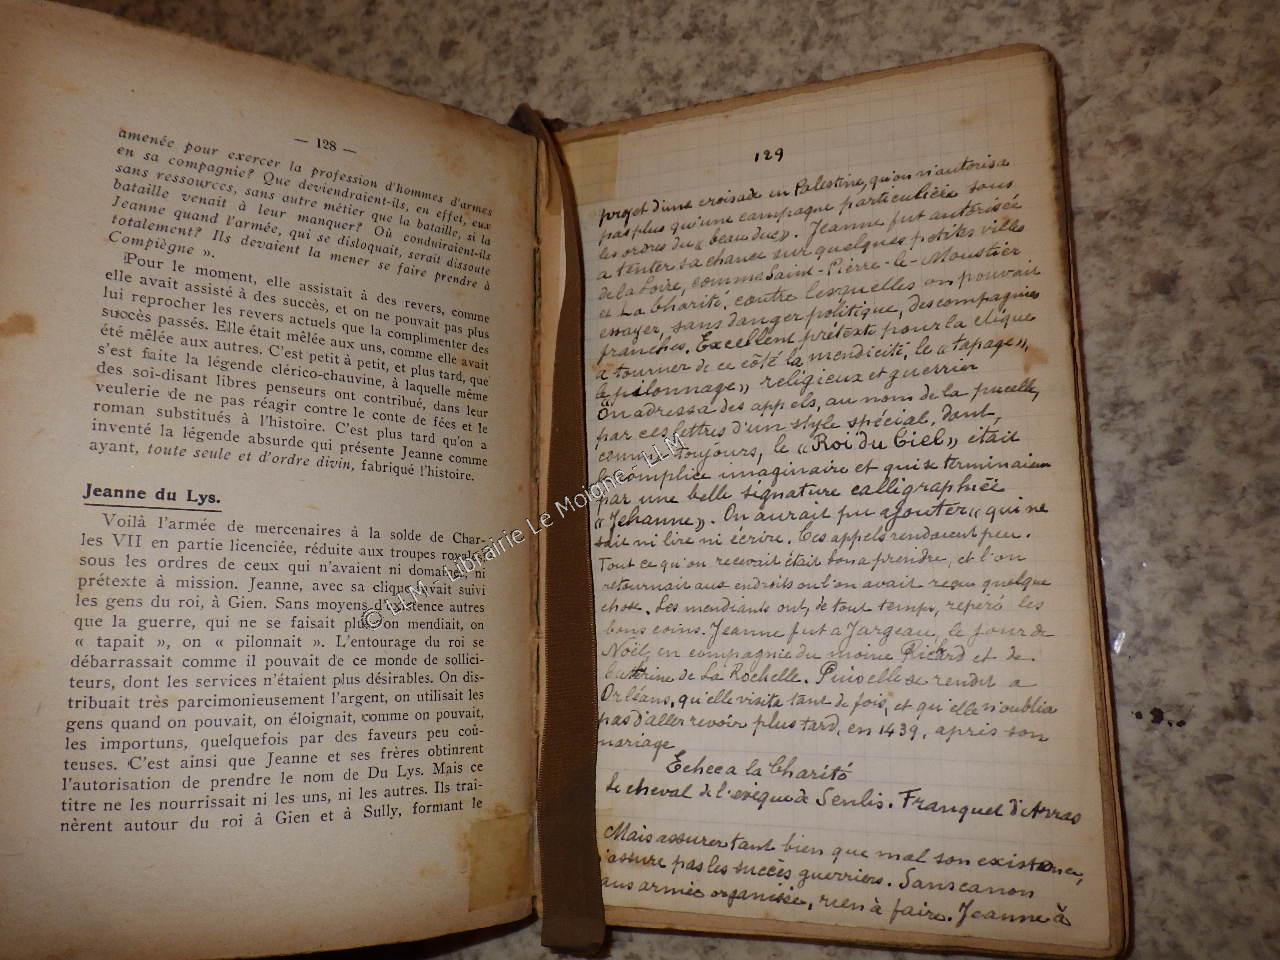 — 128 —
amenée pour exercer la profession d'hommes d'armes
en sa compagnie? Que deviendraient-ils, en effet, eux
sans ressources, sans autre métier que la bataille, si la
bataille venait à leur manquer? Où conduiraient-ils
Jeanne quand l'armée, qui se disloquait, serait dissoute
totalement? Ils devaient la mener se faire prendre à
Compiègne ».
Pour le moment, elle assistait à des revers, comme
elle avait assisté à des succès, et on ne pouvait pas plus
lui reprocher les revers actuels que la complimenter des
succès passés. Elle était mêlée aux uns, comme elle avait
été mêlée aux autres. C'est petit à petit, et plus tard, que
s'est faite la légende clérico-chauvine, à laquelle même
des soi-disant libres penseurs ont contribué, dans leur
veulerie de ne pas réagir contre le conte de fées et le
roman substitués à l'histoire. C'est plus tard qu'on a
inventé la légende absurde qui présente Jeanne comme
ayant, toute seule et d'ordre divin, fabriqué l'histoire.
Jeanne du Lys.
Voilà l'armée de mercenaires à la solde de Char-
les VII en partie licenciée, réduite aux troupes royales
sous les ordres de ceux qui n'avaient ni domaines, ni
prétexte à mission. Jeanne, avec sa clique, avait suivi
les gens du roi, à Gien. Sans moyens d'existence autres
que la guerre, qui ne se faisait plus, on mendiait, on
« tapait », on « pilonnait ». L'entourage du roi se
débarrassait comme il pouvait de ce monde de sollici-
teurs, dont les services n'étaient plus désirables. On dis-
tribuait très parcimonieusement l'argent, on utilisait les
gens quand on pouvait, on éloignait, comme on pouvait,
les importuns, quelquefois par des faveurs peu coû-
teuses. C'est ainsi que Jeanne et ses frères obtinrent
l'autorisation de prendre le nom de Du Lys. Mais ce
titre ne les nourrissait ni les uns, ni les autres. Ils traî-
nèrent autour du roi à Gien et à Sully, formant le
129
projet d'une croisade en Palestine, qu'on n'autorisa
pas plus qu'une campagne particulière sous
les ordres du « beau duc ». Jeanne fut autorisée
a tenter sa chance sur quelques petites villes
de la Loire, comme Saint-Pierre-le-Moustier
et La Charité, contre lesquelles on pouvait
essayer, sans danger politique, des compagnies
franches. Excellent prétexte pour la clique
a tourner de ce côté la mendicité, le « tapage »,
le « pilonnage » religieux et guerrier
On adressa des appels, au nom de la pucelle,
par ces lettres d'un style spécial, dont,
comme toujours, le « Roi du Ciel » était
le complice imaginaire et qui se terminaien
par une belle signature calligraphiée
« Jehanne ». On aurait pu ajouter « qui ne
sait ni lire ni écrire. Ces appels rendaient peu.
Tout ce qu'on recevait était bon a prendre, et l'on
retournait aux endroits ou l'on avait reçu quelque
chose. Les mendiants ont, de tout temps, repéré les
bons coins. Jeanne fut a Jargeau, le jour de
Noël, en compagnie du moine Ricard et de
Catherine de La Rochelle. Puis elle se rendit a
Orléans, qu'elle visita tant de fois, et qu'elle n'oublia
pas d'aller revoir plus tard, en 1439, après son
mariage
Echec a la Charité
Le cheval de l'evêque de Senlis. Franquet d'Arras
Mais assurer tant bien que mal son existence,
n'assure pas les succès guerriers. Sans canon
sans armée organisée, rien à faire. Jeanne à
© LLM - Librairie Le Moigne - LLM